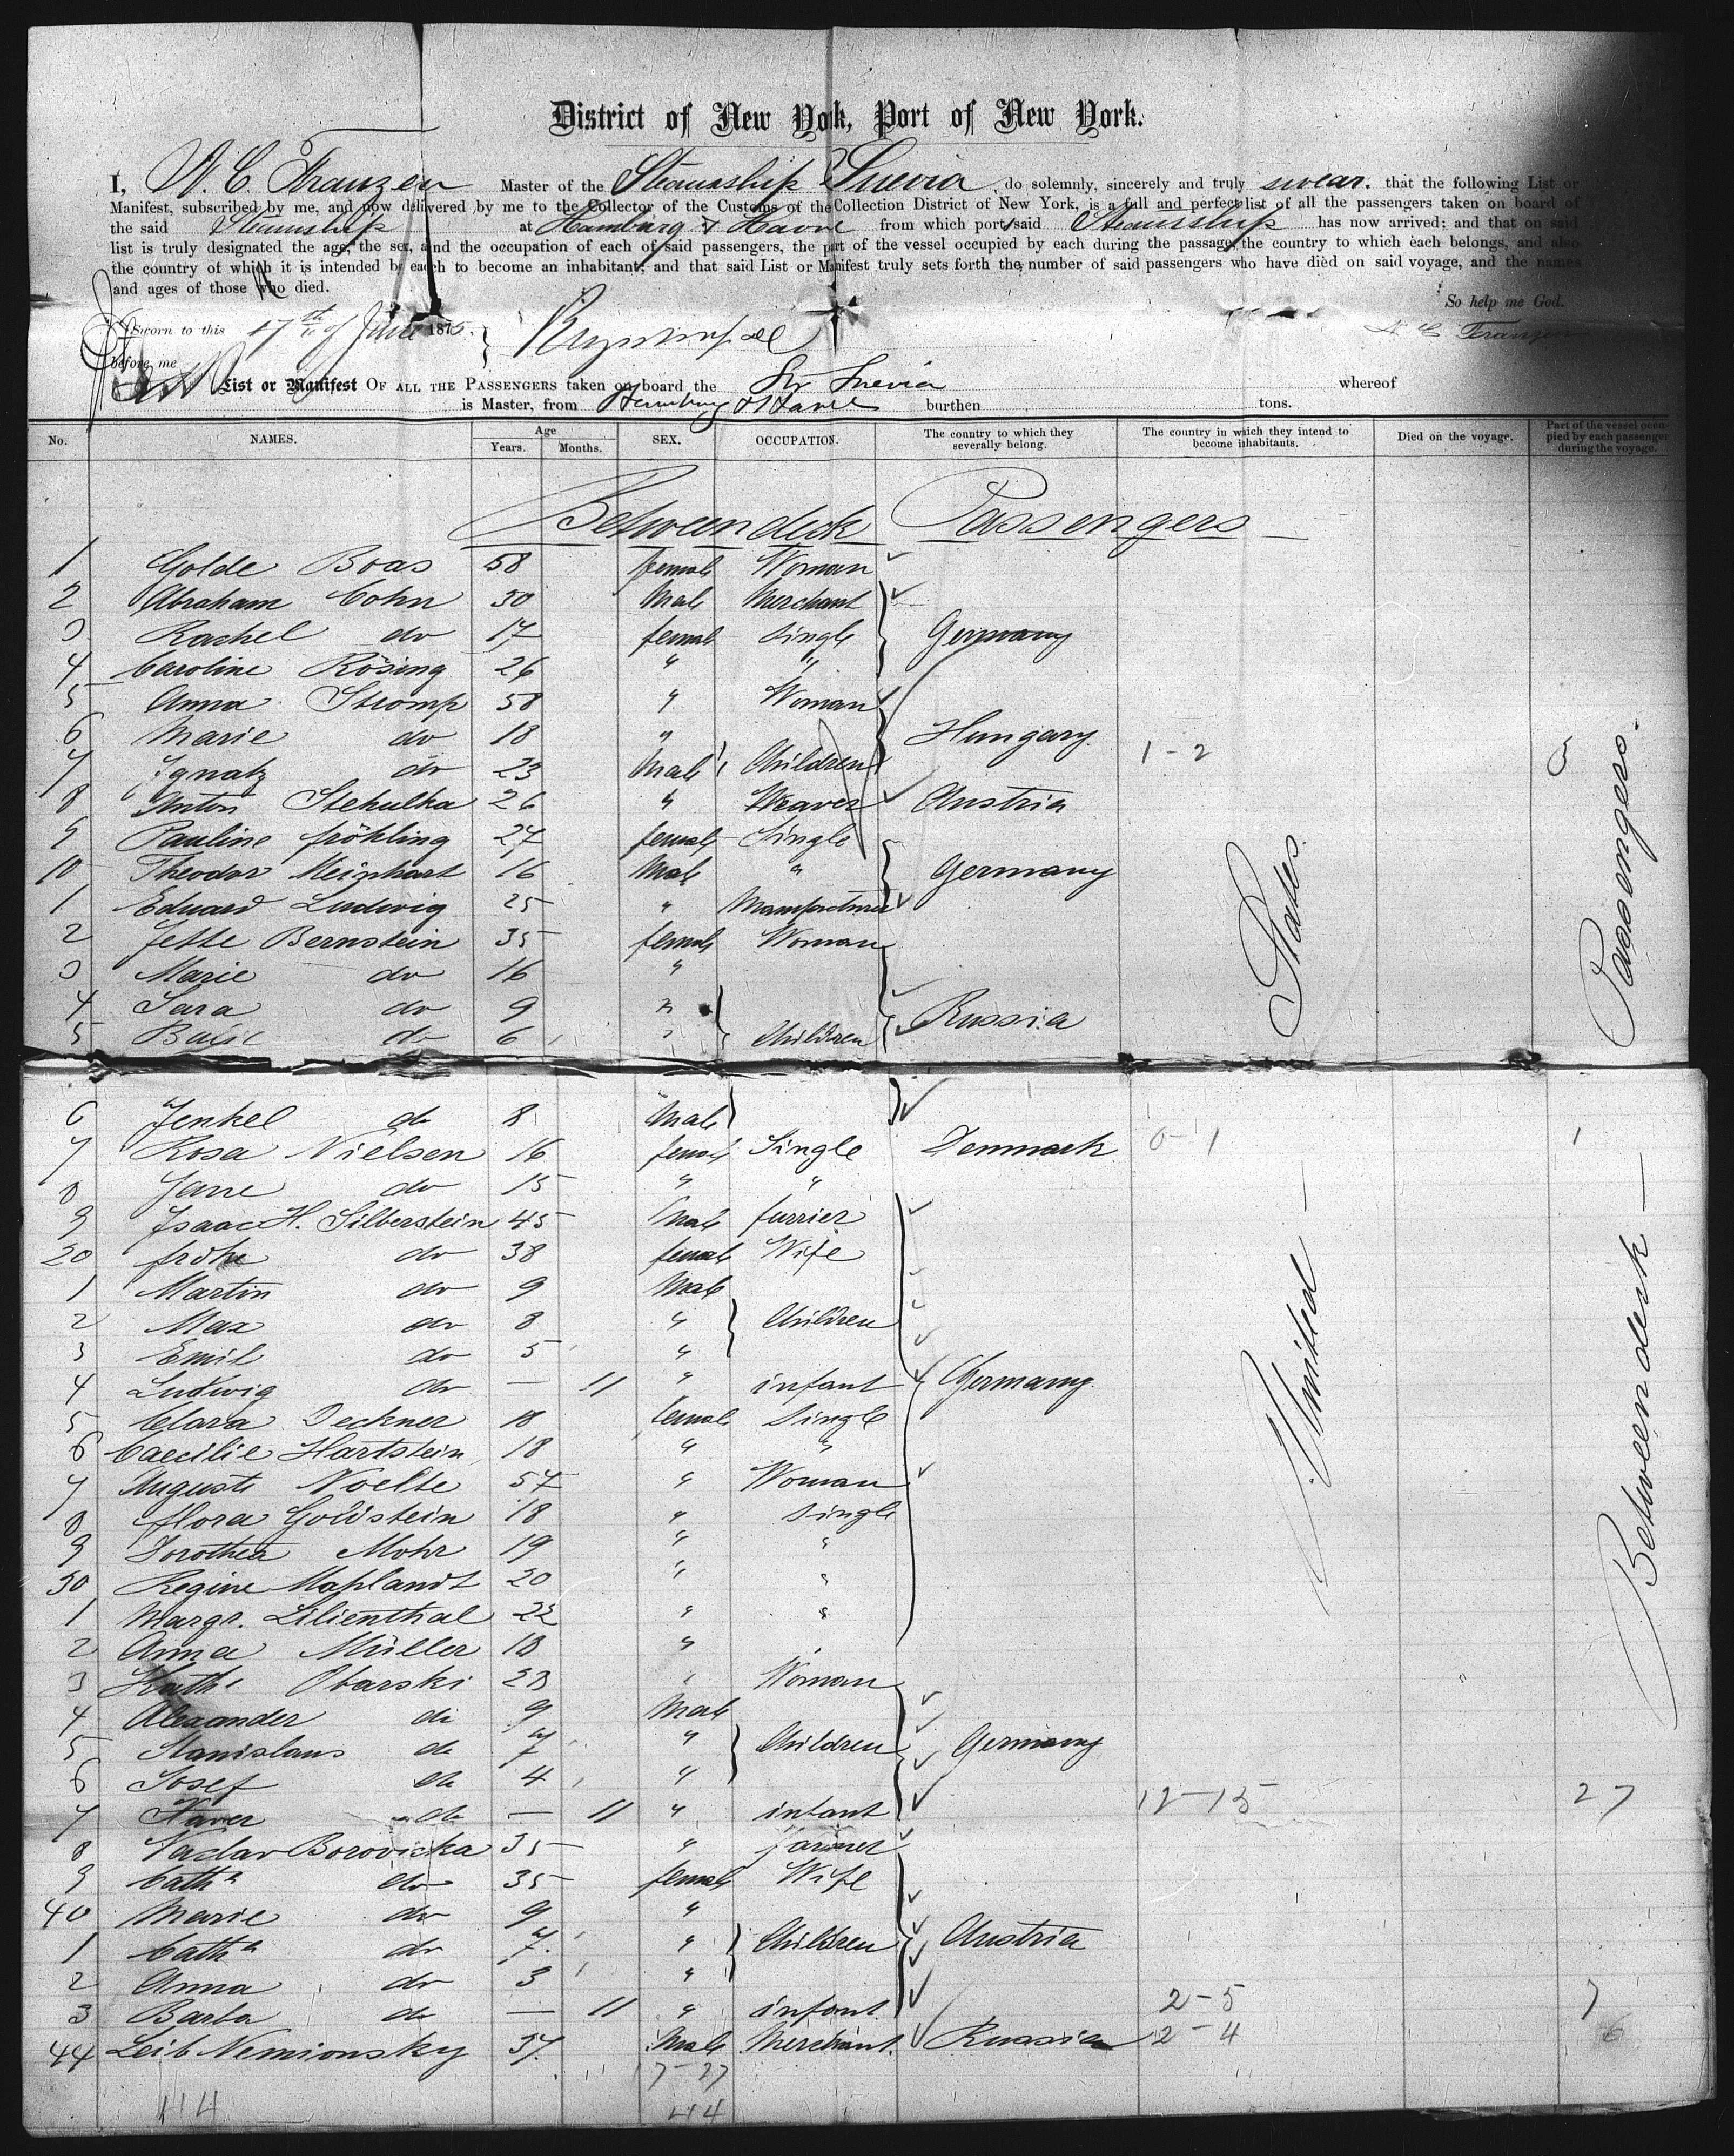 District of New York, Port of New York.
I, N. C. Franzen Master of the Steamship Suevia do solemnly, sincerely and truly swear. that the following List or
Manifest, subscribed by me, and now delivered by me to the Collector of the Customs of the Collection District of New York, is a full and perfect list of all the passengers taken on board of
the said Steamship at Hamburg & Havre from which port said Steamship has now arrived; and that on said
list is truly designated the age, the sex, and the occupation of each of said passengers, the part of the vessel occupied by each during the passage, the country to which each belongs, and also
the country of which it is intended by each to become an inhabitant; and that said List or Manifest truly sets forth the number of said passengers who have died on said voyage, and the names
and ages of those who died.
So help me God.
Sworn to this 17th of June 1875 N C Franzen
before me
List or Manifest OF ALL THE PASSENGERS taken on board the Str Suevia whereof
is Master, from Hamburg & Havre burthen tons.
No. NAMES. Age Years. Months. SEX. OCCUPATION. The country to which they severally belong. The country in which they intend to become inhabitants. Died on the voyage. Part of the vessel occupied by each passenger during the voyage.
Betweendeck Passengers
1 Golde Boas 58 female Woman
2 Abraham Cohn 50 Male Merchant
3 Rachel do 17 female Single Germany
4 Caroline Rösing 26 " "
5 Anna Stromp 58 " Woman
6 Marie do 18 " Hungary
7 Ignatz do 23 Male Children 1-2 3
8 Anton Stehulka 26 " Weaver Austria
9 Pauline Fröhling 27 female Single
10 Theodor Meinhart 16 Male " Germany
1 Eduard Ludwig 25 " Manufacturer
2 Jette Bernstein 35 female Woman
3 Marie do 16 "
4 Sara do 9 " Russia
5 do 6 " Children
6 Jenkel do 8 Male
7 Rosa Nielsen 16 female Single Denmark 0-1 1
8 Jane do 15 " "
9 Isaac H. Silberstein 45 Male furrier
20 do 38 female Wife
1 Martin do 9 Male
2 Max do 8 " Children
3 Emil do 5 "
4 Ludwig do — 11 " infant Germany
5 Clara Deckner 18 female Single
6 Caecilie Hartstein 18 " "
7 Auguste Noelte 57 " Woman
8 Flora Goldstein 18 " Single
9 Dorothea Mohr 19 " "
30 Regine Mahlandt 20 " "
1 Margr. Lilienthal 22 " "
2 Anna Müller 18 " "
3 Kath. Obarski 28 " Woman
4 Alexander do 9 Male
5 Stanislaus do 7 " Children Germany
6 Josef do 4 "
7 Xaver do — 11 " infant 12-15 27
8 Vaclav Borovicka 35 " farmer
9 Cath.a do 35 female Wife
40 Marie do 9 "
1 Cath.a do 7 " Children Austria
2 Anna do 3 "
3 Barba do — 11 " infant 2-5 7
44 Leib Nemionsky 37 Male Merchant Russia 2-4 6
17-27
44 44
United States.
Betweendeck Passengers.